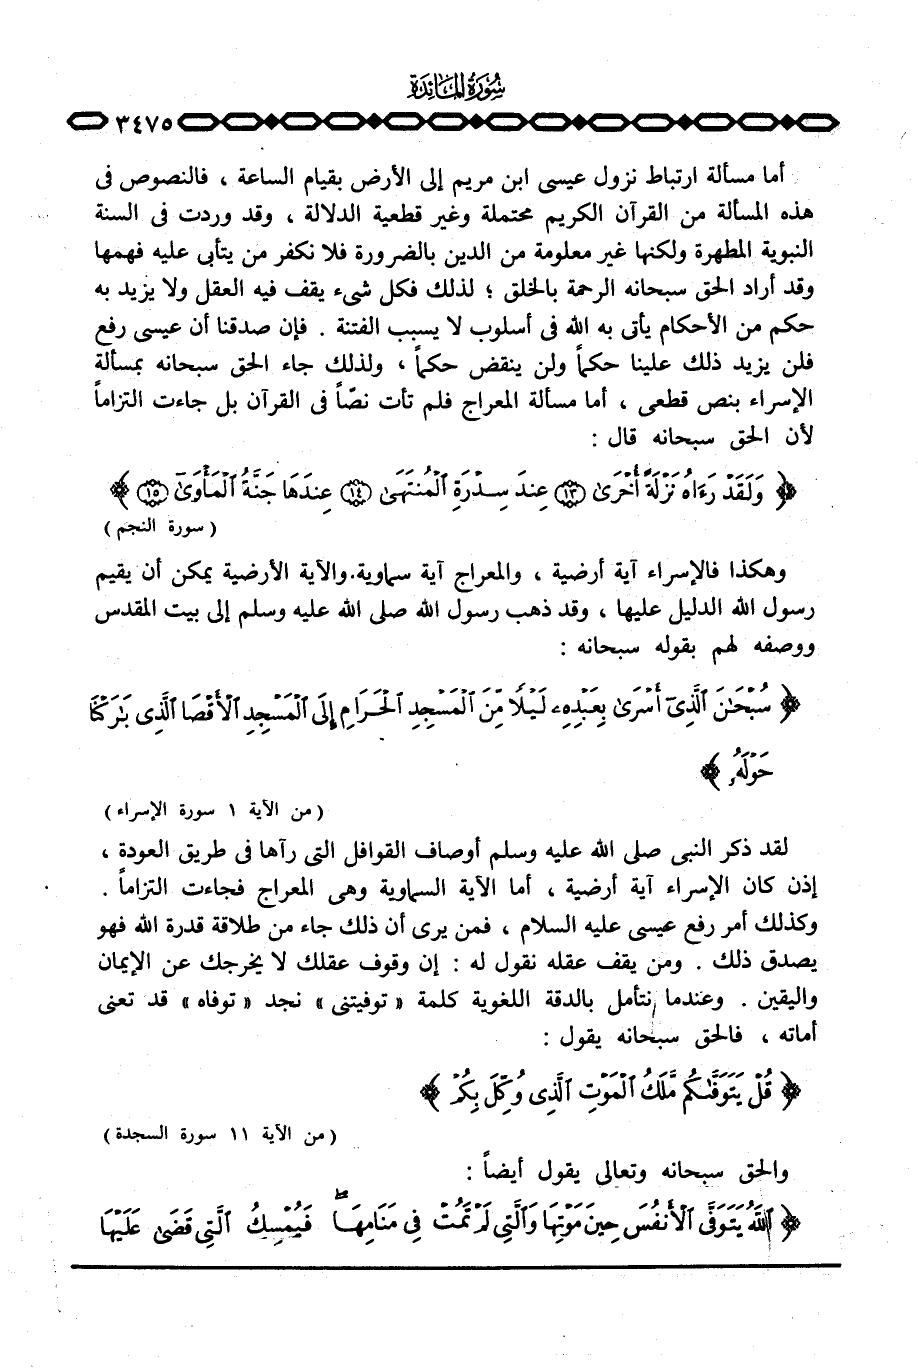 سُورَةُ المَائِدَة
٣٤٧٥
أما مسألة ارتباط نزول عيسى ابن مريم إلى الأرض بقيام الساعة ، فالنصوص فى
هذه المسألة من القرآن الكريم محتملة وغير قطعية الدلالة ، وقد وردت فى السنة
النبوية المطهرة ولكنها غير معلومة من الدين بالضرورة فلا نكفر من يتأبى عليه فهمها
وقد أراد الحق سبحانه الرحمة بالخلق ؛ لذلك فكل شىء يقف فيه العقل ولا يزيد به
حكم من الأحكام يأتى به الله فى أسلوب لا يسبب الفتنة . فإن صدقنا أن عيسى رفع
فلن يزيد ذلك علينا حكماً ولن ينقض حكماً ، ولذلك جاء الحق سبحانه بمسألة
الإسراء بنص قطعى ، أما مسألة المعراج فلم تأت نصّاً فى القرآن بل جاءت التزاماً
لأن الحق سبحانه قال :
﴿ وَلَقَدْ رَءَاهُ نَزْلَةً أُخْرَىٰ ١٣ عِندَ سِدْرَةِ ٱلْمُنتَهَىٰ ١٤ عِندَهَا جَنَّةُ ٱلْمَأْوَىٰٓ ١٥ ﴾
( سورة النجم )
وهكذا فالإسراء آية أرضية ، والمعراج آية سماوية.والآية الأرضية يمكن أن يقيم
رسول الله الدليل عليها ، وقد ذهب رسول الله صلى الله عليه وسلم إلى بيت المقدس
ووصفه لهم بقوله سبحانه :
﴿ سُبْحَٰنَ ٱلَّذِىٓ أَسْرَىٰ بِعَبْدِهِۦ لَيْلًا مِّنَ ٱلْمَسْجِدِ ٱلْحَرَامِ إِلَى ٱلْمَسْجِدِ ٱلْأَقْصَا ٱلَّذِى بَٰرَكْنَا
حَوْلَهُۥ ﴾
( من الآية ١ سورة الإسراء )
لقد ذكر النبى صلى الله عليه وسلم أوصاف القوافل التى رآها فى طريق العودة ،
إذن كان الإسراء آية أرضية ، أما الآية السماوية وهى المعراج فجاءت التزاماً .
وكذلك أمر رفع عيسى عليه السلام ، فمن يرى أن ذلك جاء من طلاقة قدرة الله فهو
يصدق ذلك . ومن يقف عقله نقول له : إن وقوف عقلك لا يخرجك عن الإيمان
واليقين . وعندما نتأمل بالدقة اللغوية كلمة « توفيتنى » نجد « توفاه » قد تعنى
أماته ، فالحق سبحانه يقول :
﴿ قُلْ يَتَوَفَّىٰكُم مَّلَكُ ٱلْمَوْتِ ٱلَّذِى وُكِّلَ بِكُمْ ﴾
( من الآية ١١ سورة السجدة )
والحق سبحانه وتعالى يقول أيضاً :
﴿ ٱللَّهُ يَتَوَفَّى ٱلْأَنفُسَ حِينَ مَوْتِهَا وَٱلَّتِى لَمْ تَمُتْ فِى مَنَامِهَا ۖ فَيُمْسِكُ ٱلَّتِى قَضَىٰ عَلَيْهَا